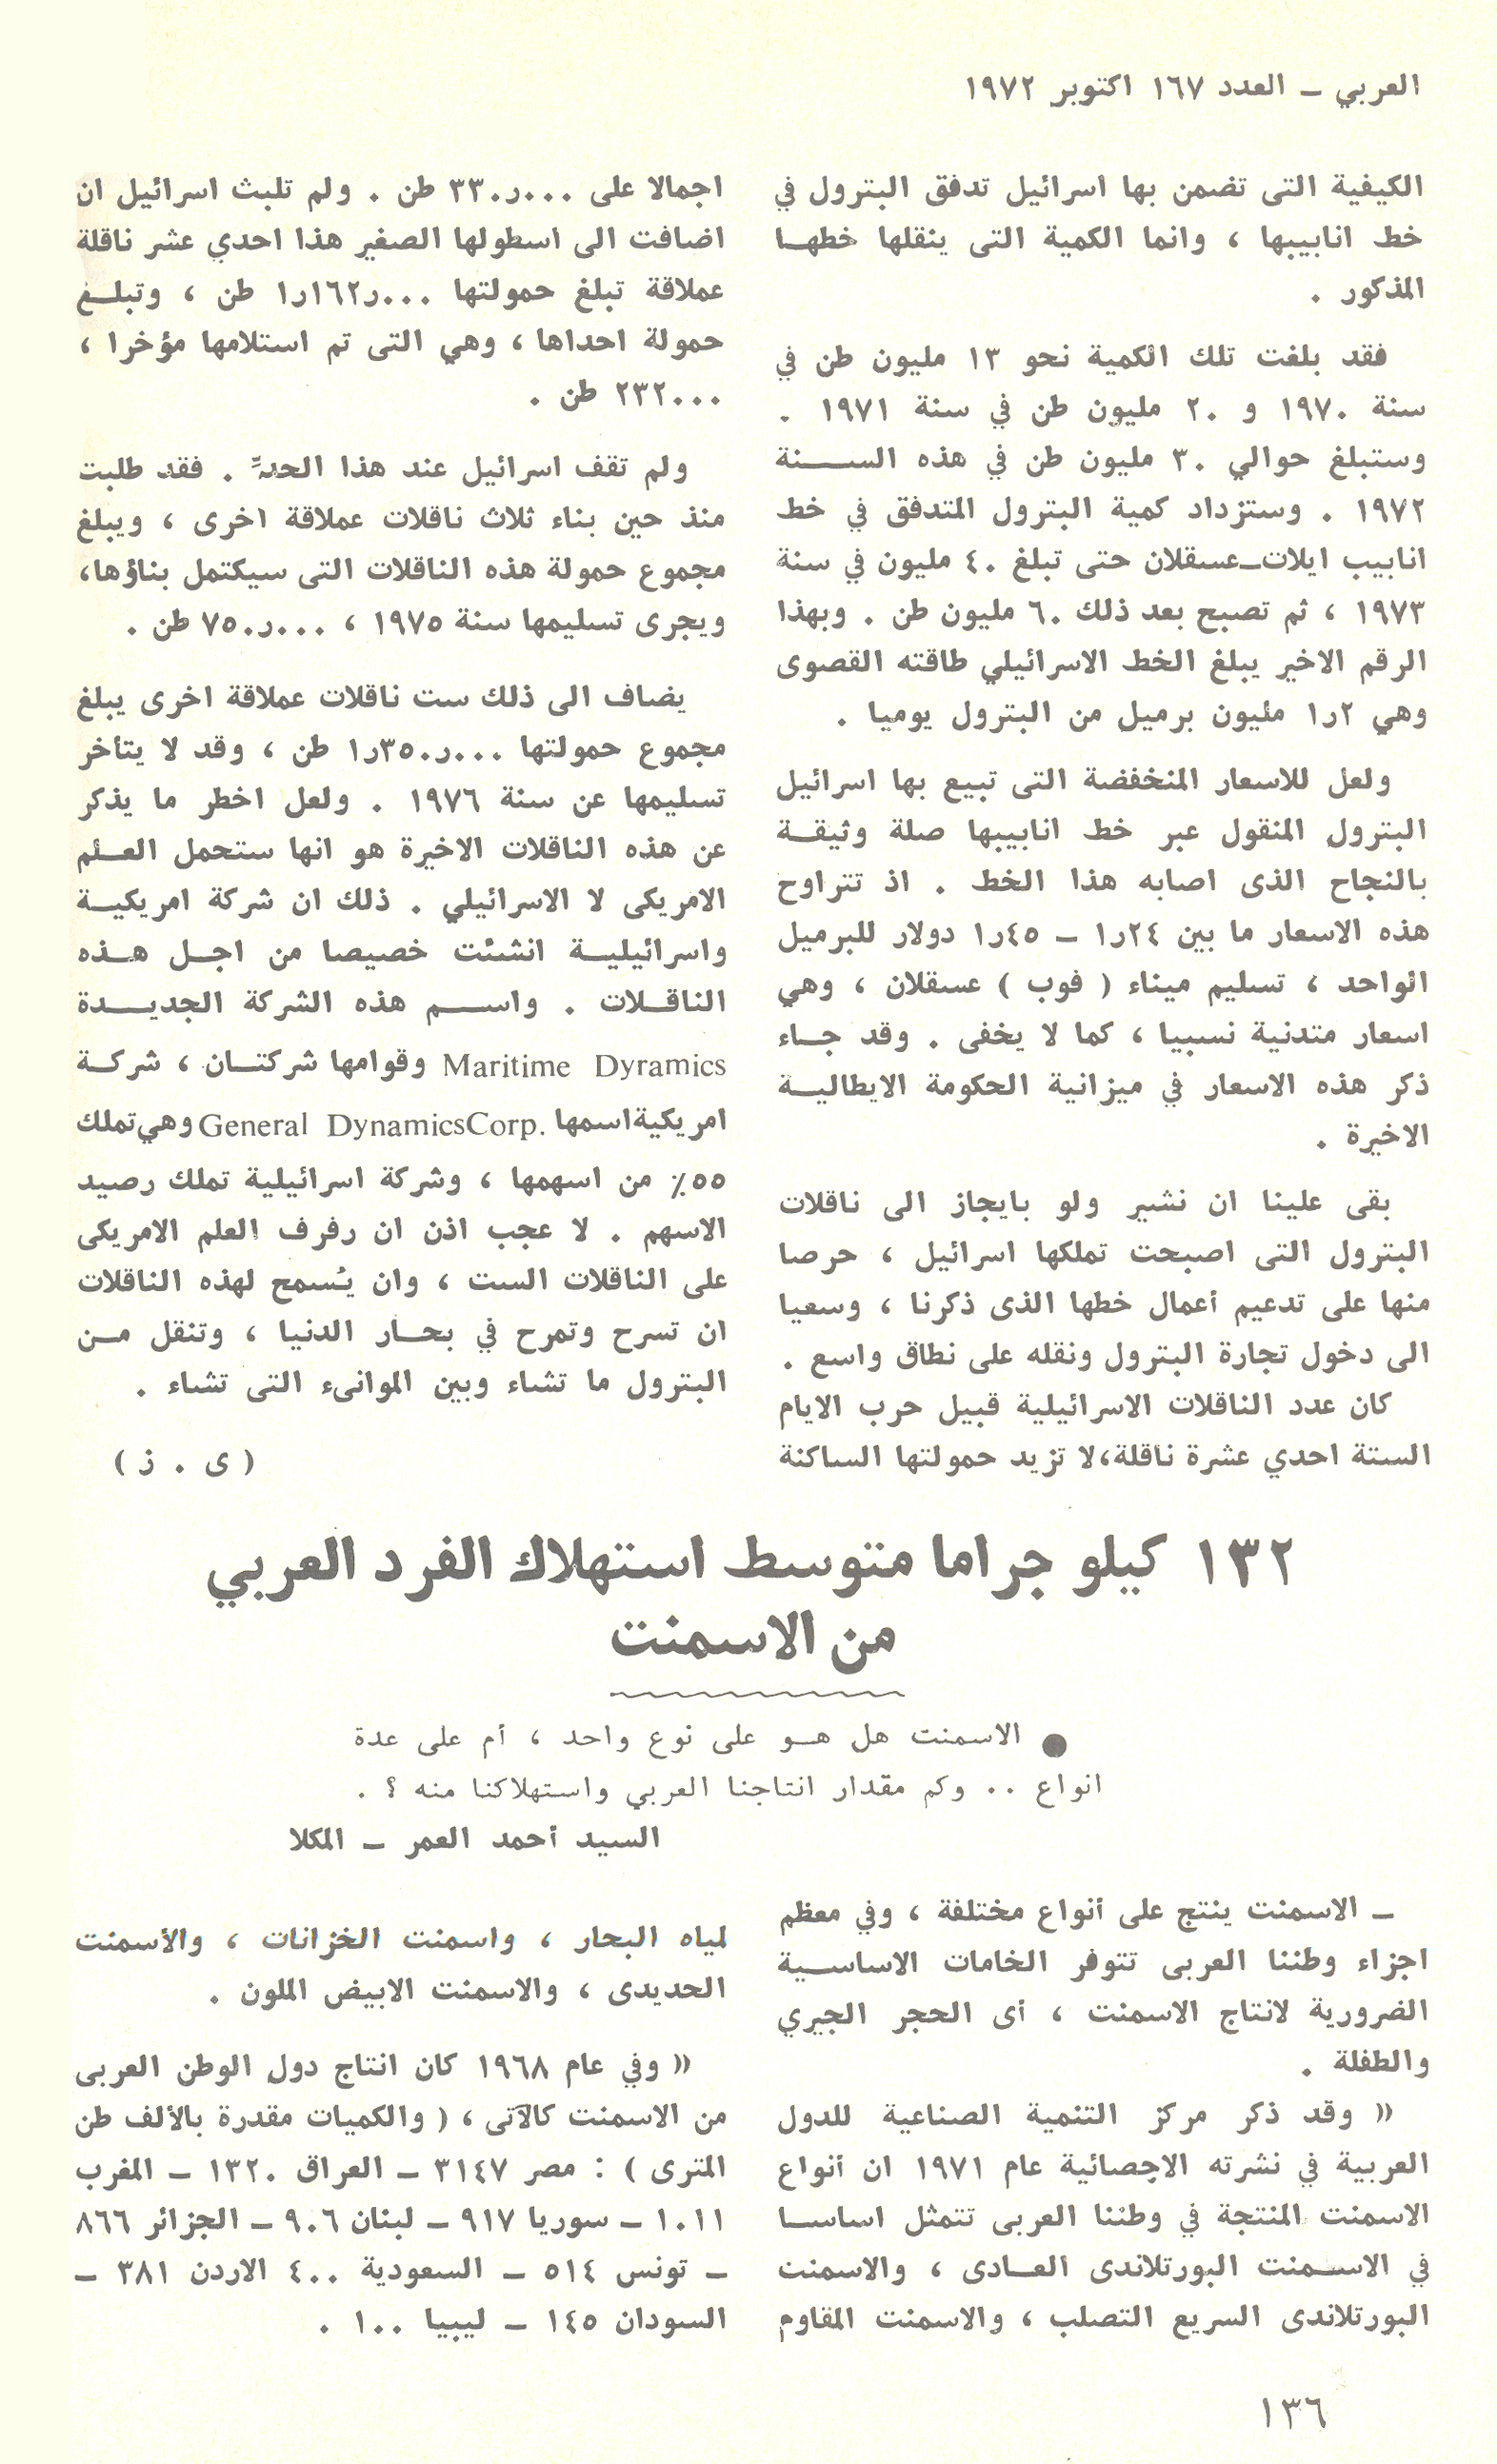 العربي – العدد ١٦٧ اكتوبر ١٩٧٢
الكيفية التى تضمن بها اسرائيل تدفق البترول في
خط انابيبها ، وانما الكمية التى ينقلها خطهـا
المذكور .
فقد بلغت تلك الكمية نحو ١٣ مليون طن في
سنة ١٩٧٠ و ٢٠ مليون طن في سنة ١٩٧١ .
وستبلغ حوالي ٣٠ مليون طن في هذه الســـنة
١٩٧٢ . وستزداد كمية البترول المتدفق في خط
انابيب ايلات–عسقلان حتى تبلغ ٤٠ مليون في سنة
١٩٧٣ ، ثم تصبح بعد ذلك ٦٠ مليون طن . وبهذا
الرقم الاخير يبلغ الخط الاسرائيلي طاقته القصوى
وهي ١ر٢ مليون برميل من البترول يوميا .
ولعل للاسعار المنخفضة التى تبيع بها اسرائيل
البترول المنقول عبر خط انابيبها صلة وثيقـة
بالنجاح الذى اصابه هذا الخط . اذ تتراوح
هذه الاسعار ما بين ١ر٢٤ – ١ر٤٥ دولار للبرميل
الواحد ، تسليم ميناء ( فوب ) عسقلان ، وهي
اسعار متدنية نسبيا ، كما لا يخفى . وقد جـاء
ذكر هذه الاسعار في ميزانية الحكومة الايطاليـة
الاخيرة .
بقى علينا ان نشير ولو بايجاز الى ناقلات
البترول التى اصبحت تملكها اسرائيل ، حرصا
منها على تدعيم أعمال خطها الذى ذكرنا ، وسعيا
الى دخول تجارة البترول ونقله على نطاق واسع .
كان عدد الناقلات الاسرائيلية قبيل حرب الايام
الستة احدي عشرة ناقلة،لا تزيد حمولتها الساكنة
اجمالا على ٣٣٠ر٠٠٠ طن . ولم تلبث اسرائيل ان
اضافت الى اسطولها الصغير هذا احدي عشر ناقلة
عملاقة تبلغ حمولتها ١ر١٦٢ر٠٠٠ طن ، وتبلـغ
حمولة احداها ، وهي التى تم استلامها مؤخرا ،
٢٣٢٠٠٠ طن .
ولم تقف اسرائيل عند هذا الحدّ . فقد طلبت
منذ حين بناء ثلاث ناقلات عملاقة اخرى ، ويبلغ
مجموع حمولة هذه الناقلات التى سيكتمل بناؤها،
ويجرى تسليمها سنة ١٩٧٥ ، ٧٥٠ر٠٠٠ طن .
يضاف الى ذلك ست ناقلات عملاقة اخرى يبلغ
مجموع حمولتها ١ر٣٥٠ر٠٠٠ طن ، وقد لا يتأخر
تسليمها عن سنة ١٩٧٦ . ولعل اخطر ما يذكر
عن هذه الناقلات الاخيرة هو انها ستحمل العـلم
الامريكى لا الاسرائيلي . ذلك ان شركة امريكيـة
واسرائيليـة انشئت خصيصا من اجـل هـذه
الناقـلات . واســم هذه الشركة الجديـــدة
Maritime Dyramics وقوامها شركتـان ، شركـة
امريكية اسمها General DynamicsCorp. وهي تملك
٥٥٪ من اسهمها ، وشركة اسرائيلية تملك رصيد
الاسهم . لا عجب اذن ان رفرف العلم الامريكى
على الناقلات الست ، وان يُسمح لهذه الناقلات
ان تسرح وتمرح في بحـار الدنيا ، وتنقل مـن
البترول ما تشاء وبين الموانىء التى تشاء .
( ى . ذ )
١٣٢ كيلو جراما متوسط استهلاك الفرد العربي
من الاسمنت
● الاسمنت هل هـو على نوع واحد ، أم على عدة
انواع .. وكم مقدار انتاجنا العربي واستهلاكنا منه ؟ .
السيد أحمد العمر – المكلا
– الاسمنت ينتج على أنواع مختلفة ، وفي معظم
اجزاء وطننا العربى تتوفر الخامات الاساسـية
الضرورية لانتاج الاسمنت ، أى الحجر الجيري
والطفلة .
« وقد ذكر مركز التنمية الصناعية للدول
العربية في نشرته الاحصائية عام ١٩٧١ ان أنواع
الاسمنت المنتجة في وطننا العربى تتمثل اساسـا
في الاسـمنت البورتلاندى العـادى ، والاسمنت
البورتلاندى السريع التصلب ، والاسمنت المقاوم
لمياه البحار ، واسمنت الخزانات ، والأسمنت
الحديدى ، والاسمنت الابيض الملون .
« وفي عام ١٩٦٨ كان انتاج دول الوطن العربى
من الاسمنت كالآتى ، ( والكميات مقدرة بالألف طن
المترى ) : مصر ٣١٤٧ – العراق ١٣٢٠ – المغرب
١٠١١ – سوريا ٩١٧ – لبنان ٩٠٦ – الجزائر ٨٦٦
– تونس ٥١٤ – السعودية ٤٠٠ الاردن ٣٨١ –
السودان ١٤٥ – ليبيا ١٠٠ .
١٣٦